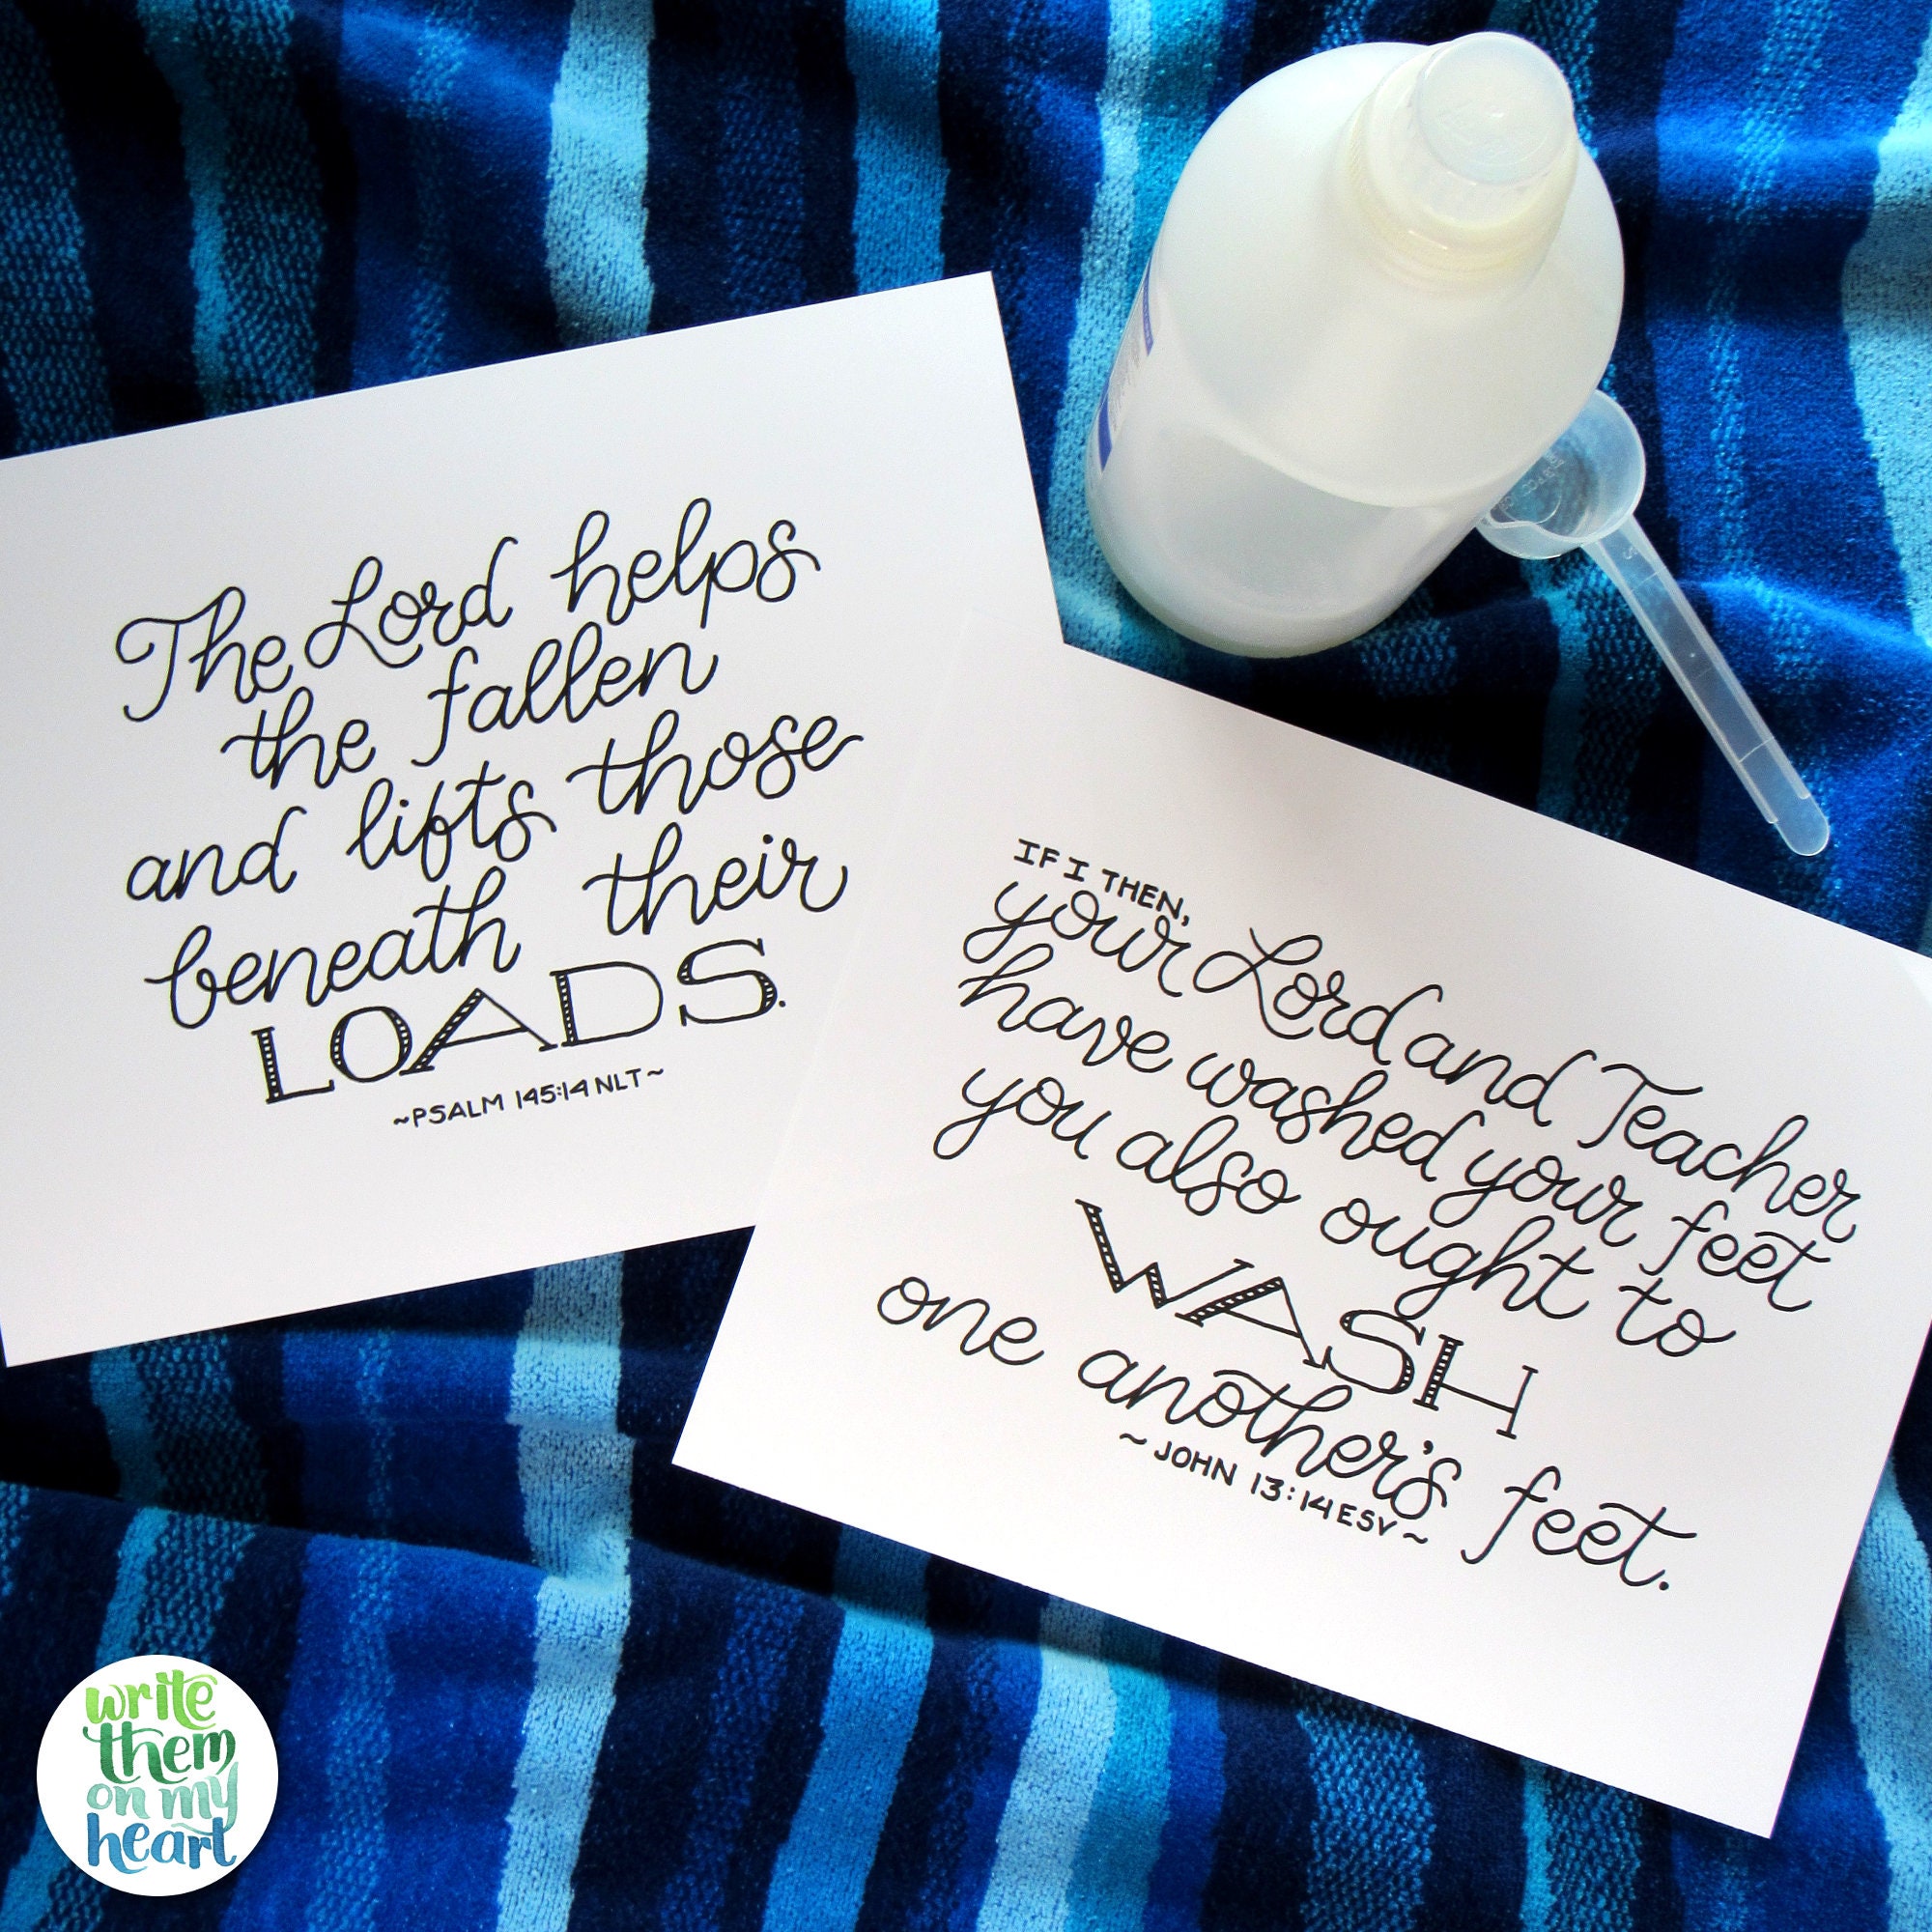 The Lord helps
the fallen
and lifts those
beneath their
LOADS.
~PSALM 145:14 NLT~
IF I THEN,
your Lord and Teacher
have washed your feet
you also ought to
WASH
one another's feet.
~JOHN 13:14 ESV~
write
them
on my
heart